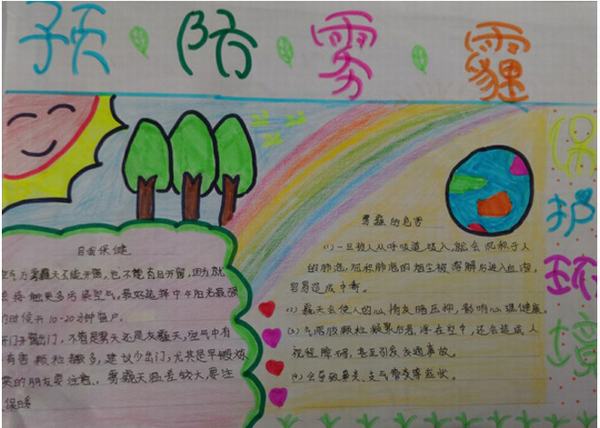 预防雾霾
保护环境
自我保健
雾霾天不能开窗,也不能盲目开窗,因为就
会接触更多污染空气,最好选择中午阳光最强
的时候开10-20分钟窗户。
门不管是雾天还是灰霾天,空气中有
有害颗粒都多,建议少出门,尤其是平时
的朋友要注意。雾霾天温差较大,要注
保暖
雾霾的危害
(1)一旦被人从呼吸道吸入,就会沉积于人
的肺泡,沉积肺泡的烟尘被溶解后进入血液,
容易造成中毒。
霾天会使人的心情灰暗压抑,影响心理健康
颗粒 浮在空中,还会造成人
视程障碍,甚至引发交通事故。
会导致鼻炎、支气管炎等症状。